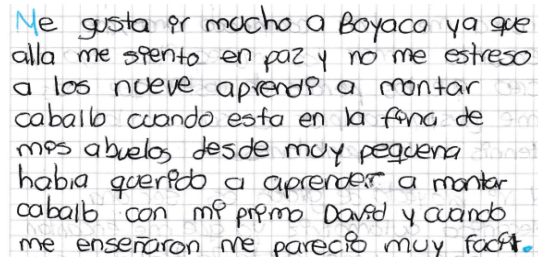 Me gusta ir mucho a Boyaca ya que
alla me siento en paz y no me estreso
a los nueve aprendi a montar
caballo cuando esta en la fina de
mis abuelos desde muy pequena
habia querido a aprender a montar
caballo con mi primo David y cuando
me enseñaron me parecio muy facil.